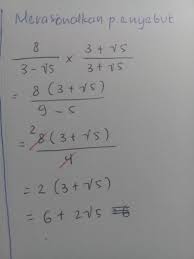 Merasionalkan penyebut
8/(3-√5) × (3+√5)/(3+√5)
= 8(3+√5)/(9-5)
= ²8(3+√5)/4
= 2(3+√5)
= 6+2√5